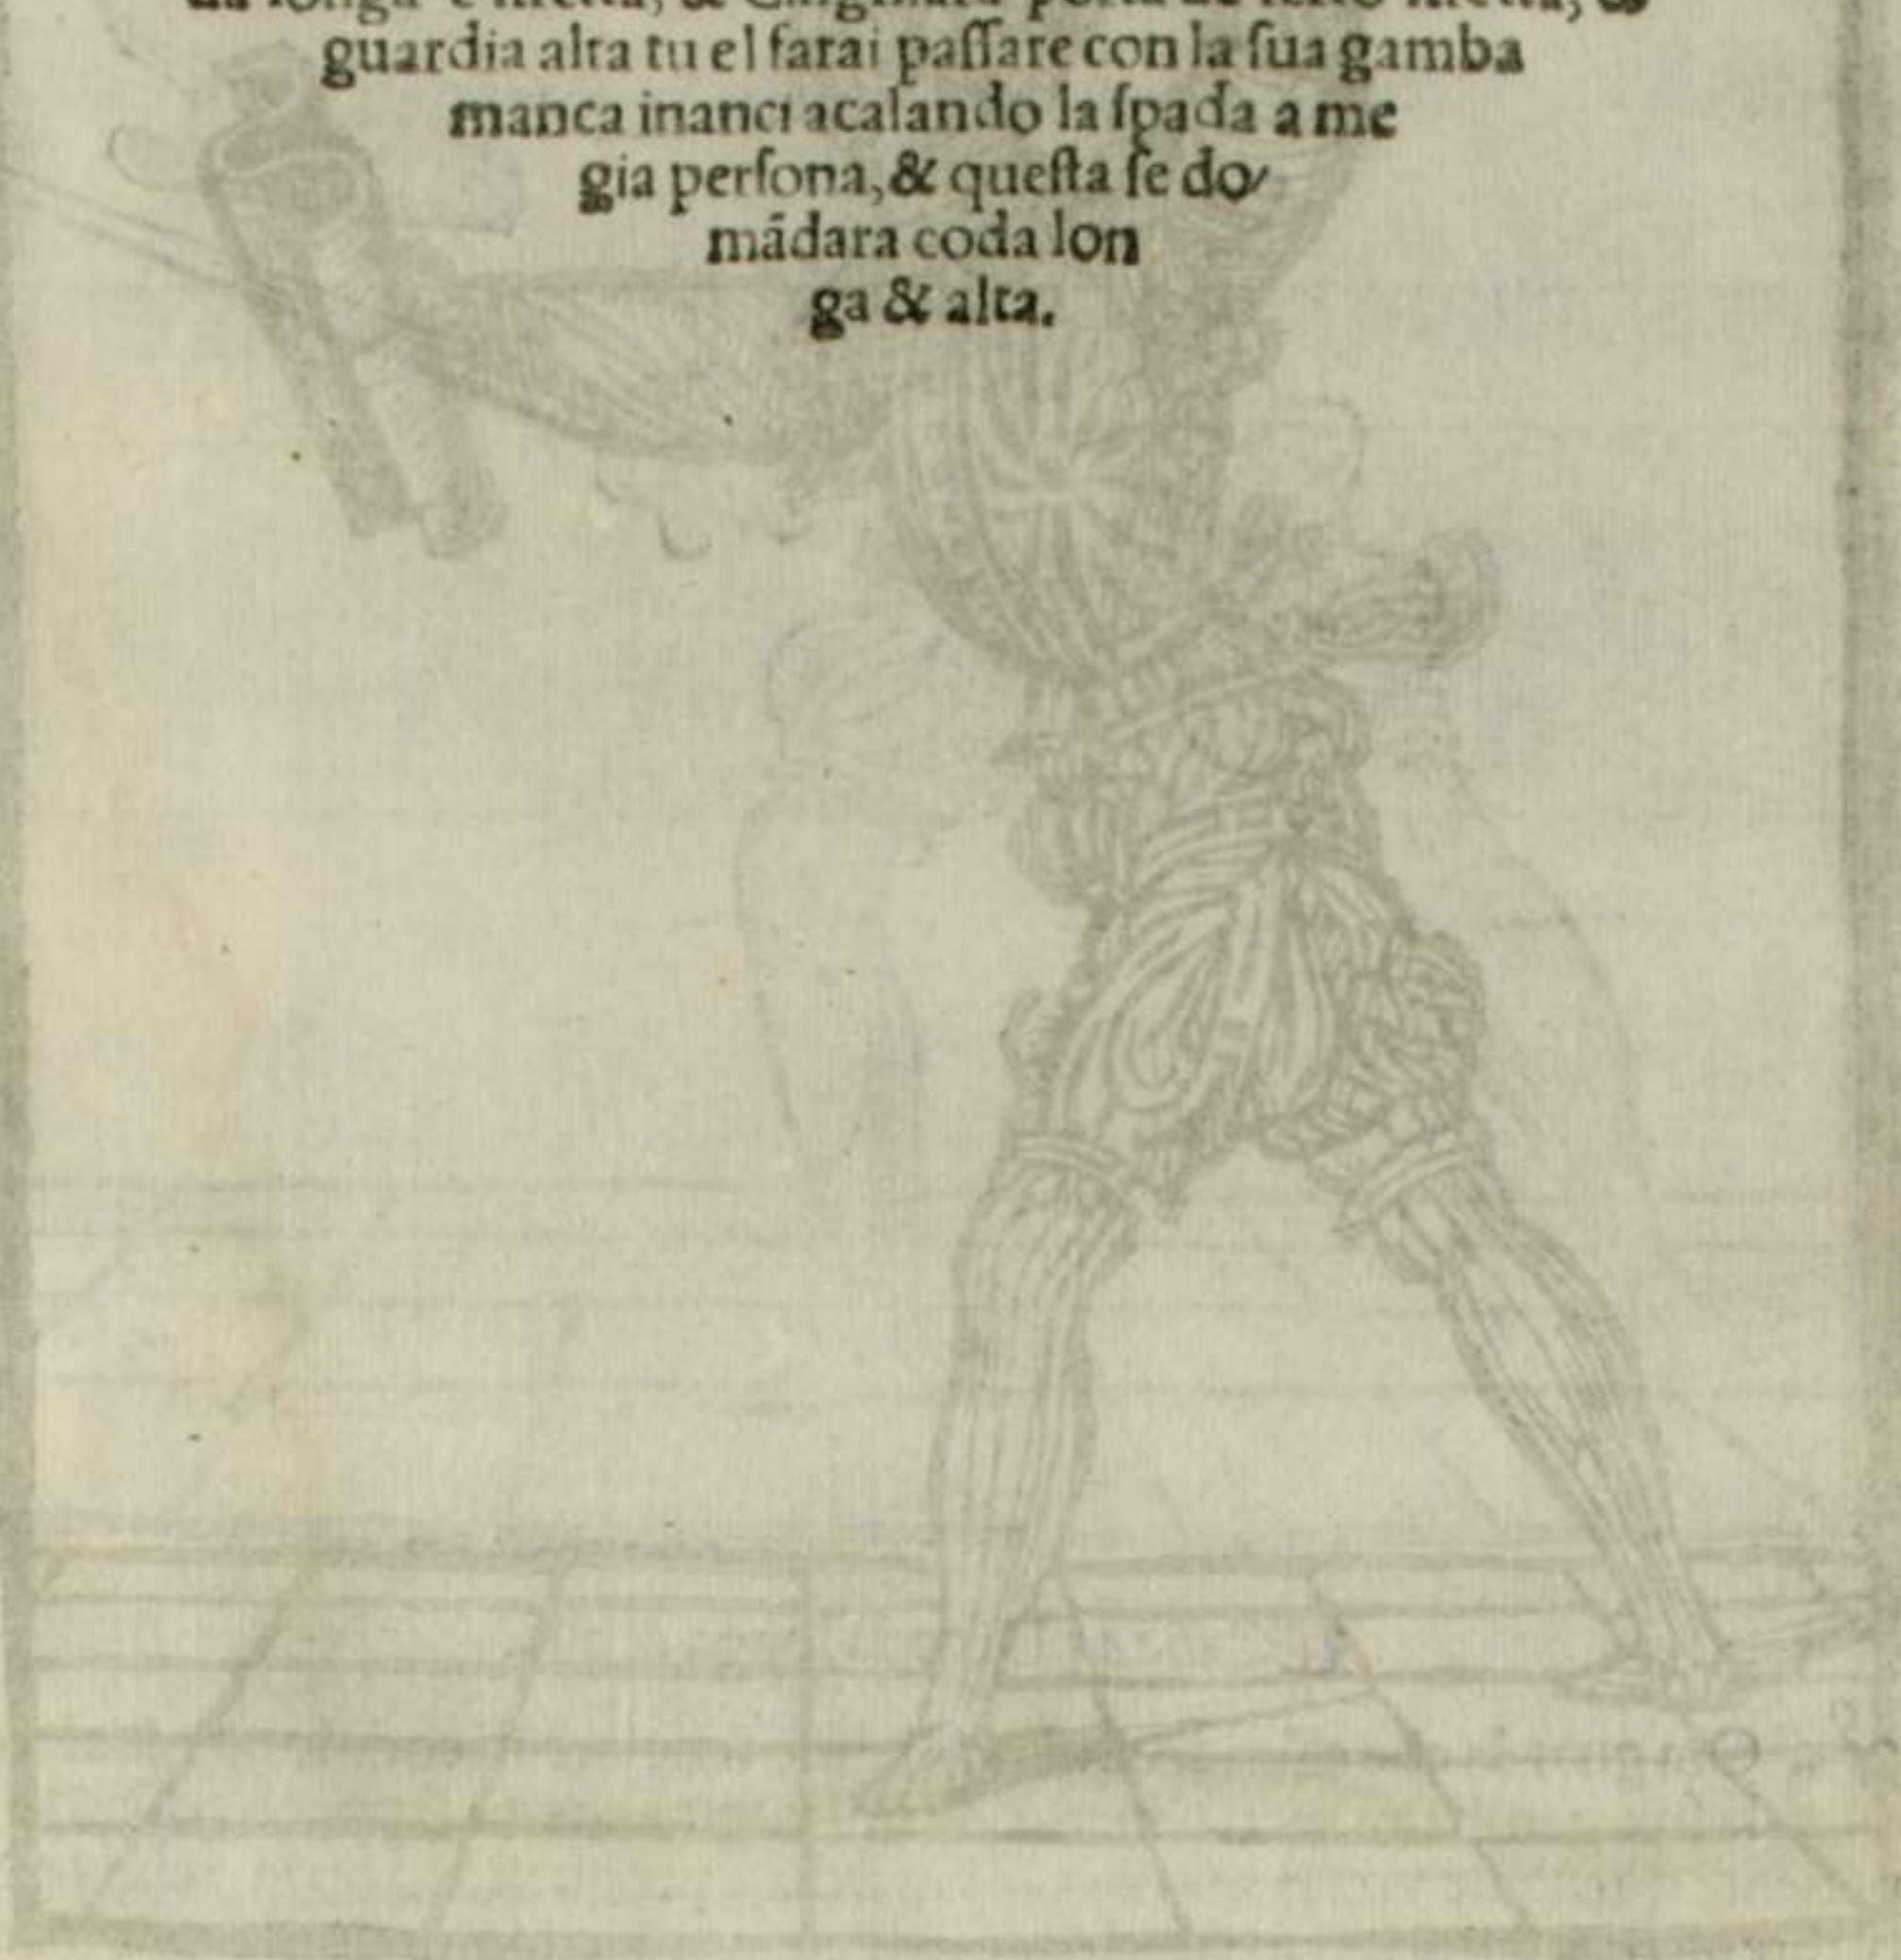 guardia alta tu el farai paſſare con la ſua gamba
manca inanci acalando la ſpada a me
gia perſona, & queſta ſe do/
mãdara coda lon
ga & alta.